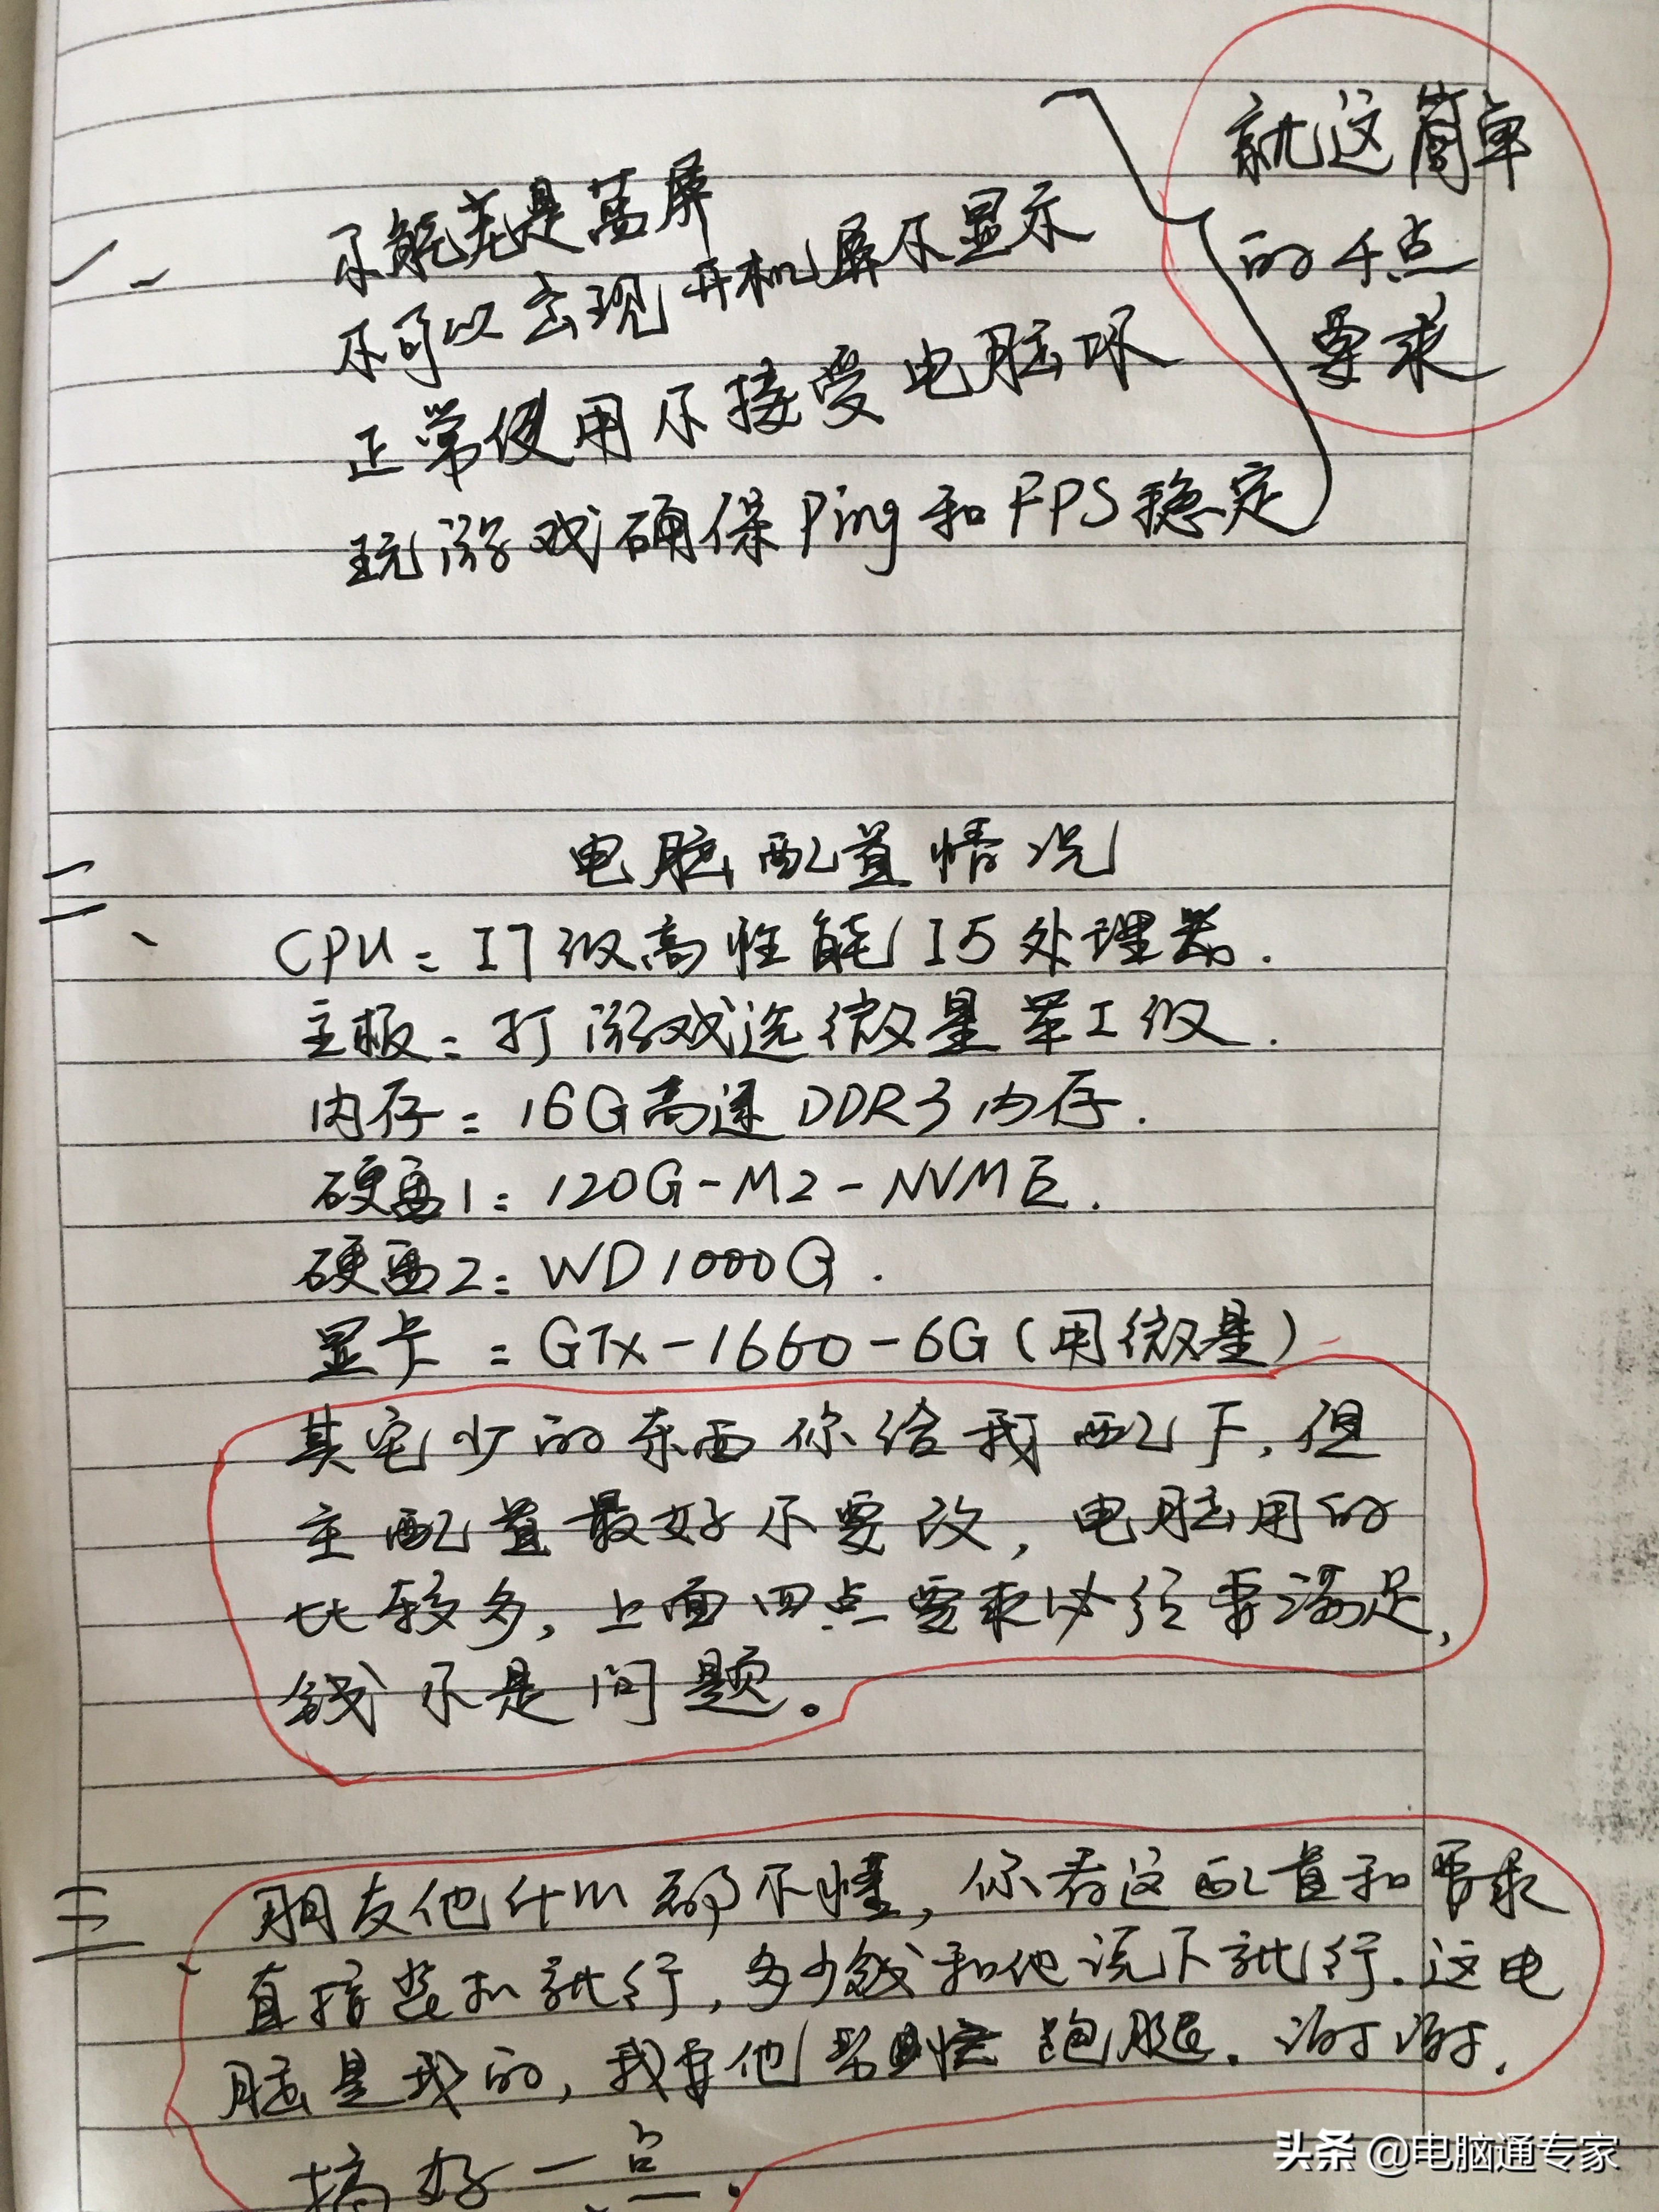 就这简单
的4点
要求
一、
不能老是蓝屏
不可以出现开机屏不显示
正常使用不接受电脑坏
玩游戏确保Ping和FPS稳定
二、
电脑配置情况
CPU:I7级高性能I5处理器.
主板:打游戏选微星军工级.
内存:16G高速DDR3内存.
硬盘1:120G-M2-NVME.
硬盘2:WD1000G.
显卡:GTX-1660-6G(用微星)
其它少的东西你给我配下,但
主配置最好不要改,电脑用的
比较多,上面四点要求必须要满足,
钱不是问题。
三
朋友他什么都不懂,你看这配置和要求
直接装机就行,多少钱和他说下就行.这电
脑是我的,我要他帮忙跑腿.谢谢.
搞好一点.
头条 @电脑通专家